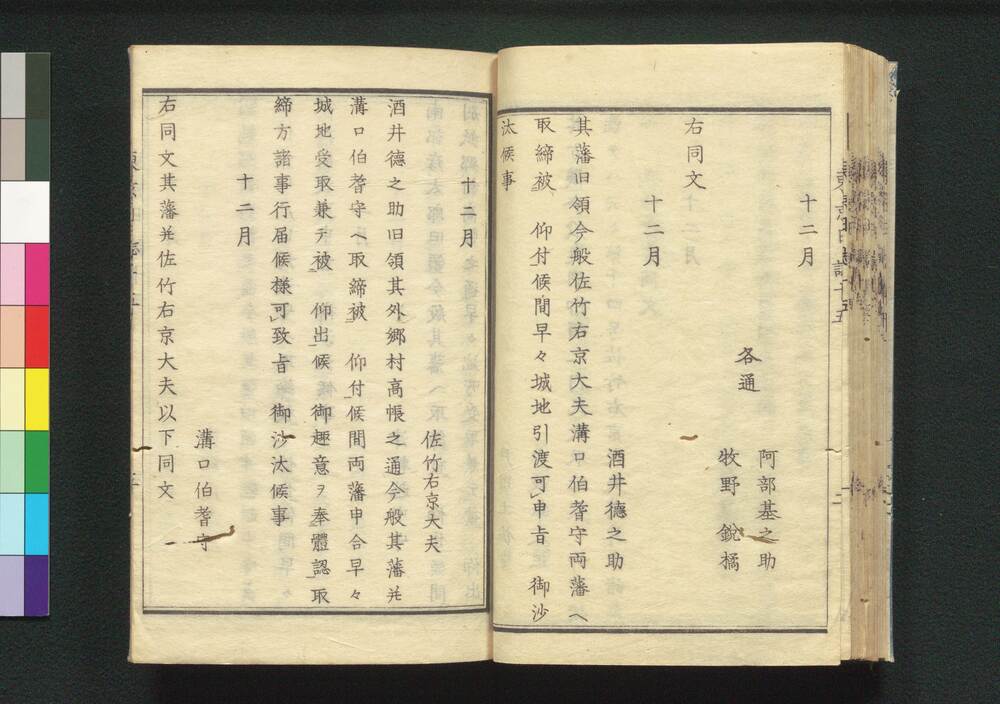 十二月
各通
阿部基之助
牧野銳橘
右同文
十二月
酒井德之助
其藩旧領今般佐竹右京大夫溝口伯耆守両藩へ
取締被 仰付候間早々城地引渡可申旨 御沙
汰候事
十二月
佐竹右京大夫
酒井德之助旧領其外郷村高帳之通今般其藩幷
溝口伯耆守へ取締被 仰付候間両藩申合早々
城地受取兼テ被 仰出候 御趣意ヲ奉體認取
締方諸事行届候様可致旨 御沙汰候事
十二月
溝口伯耆守
右同文其藩幷佐竹右京大夫以下同文